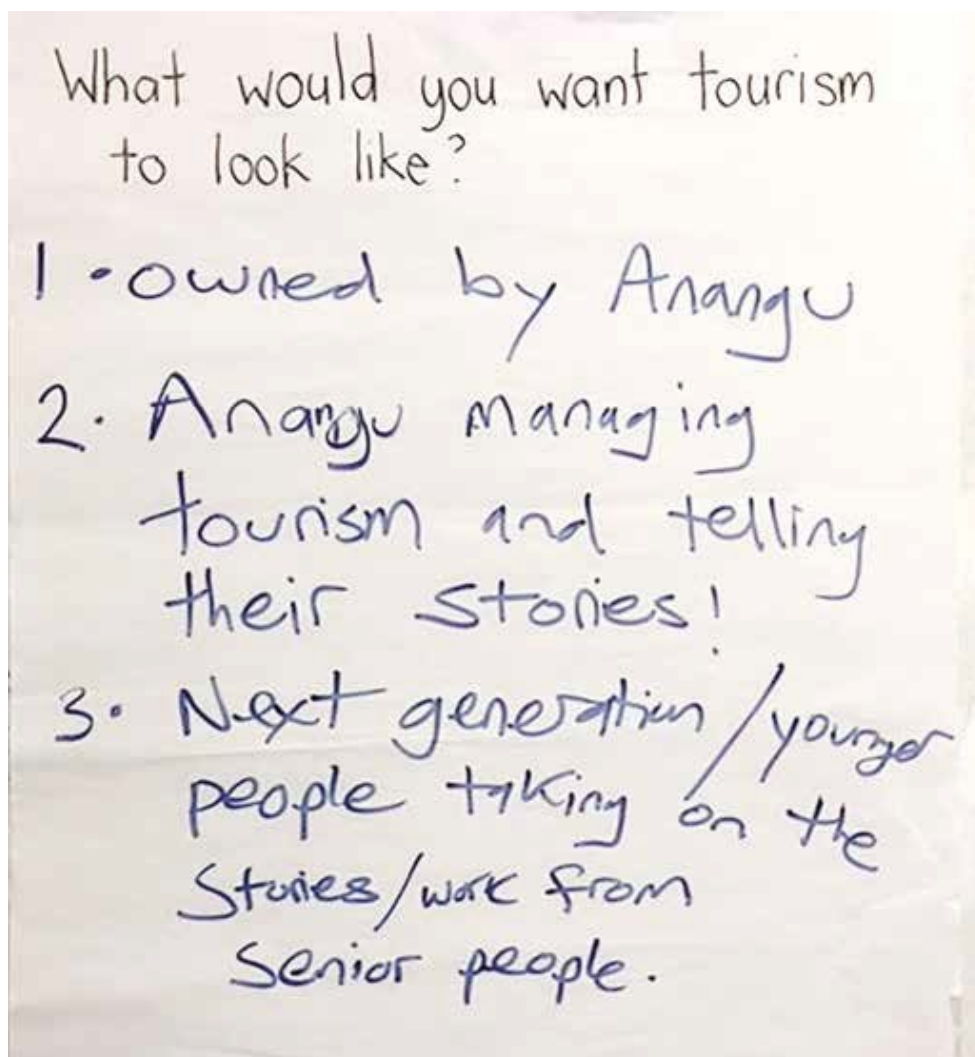 What would you want tourism
to look like?
1. owned by Anangu
2. Anangu managing
tourism and telling
their stories!
3. Next generation/younger
people taking on the
Stories/work from
Senior people.